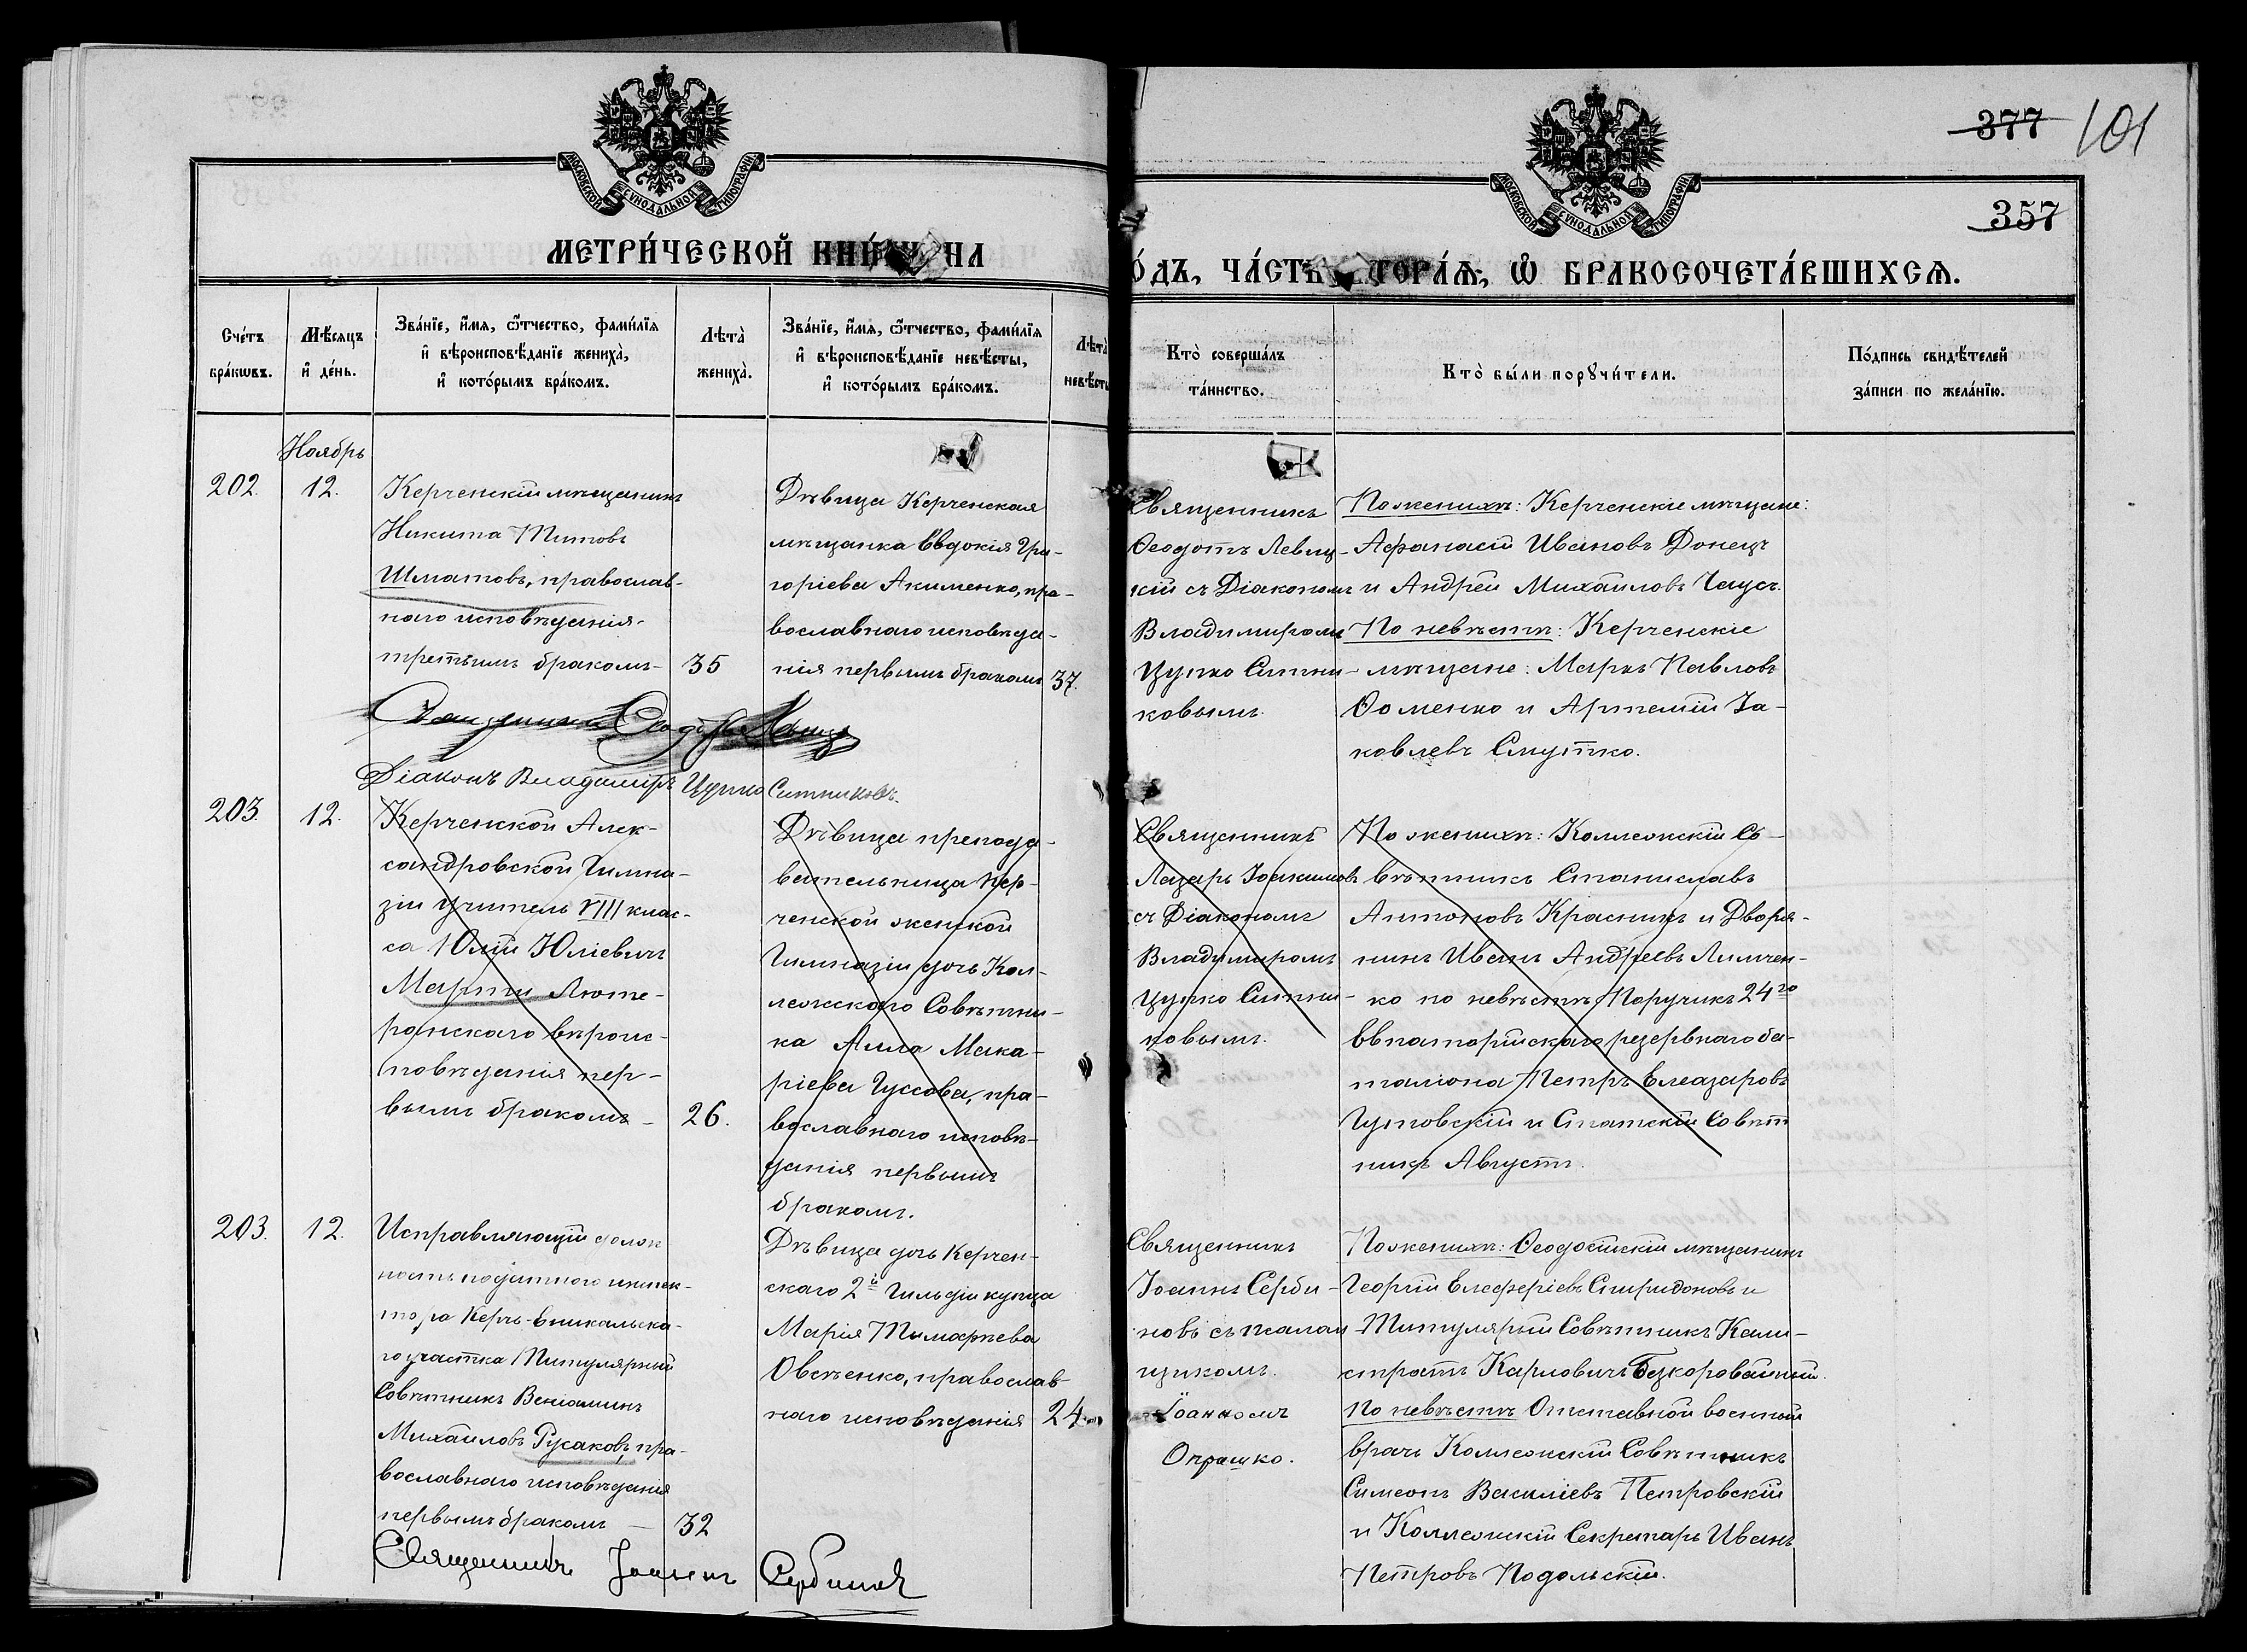 377 101
357
МОСКОВСКОЙ СѴНОДАЛЬНОЙ ТИПОГРАФІИ
МЕТРИ́ЧЕСКОЙ КНИ́ НА
МОСКОВСКОЙ СѴНОДАЛЬНОЙ ТИПОГРАФІИ
О́ДЪ, ЧА́СТЬ ТОРА́Ѧ, Ѽ БРАКОСОЧЕТА́ВШИХСѦ.
Сче́тъ
бра́кѡвъ.
Мѣ́сѧцъ
и҆ де́нь.
Зва́нїе, и҆́мѧ, ѻ҆́тчество, фами́лїѧ
и҆ вѣроисповѣ́данїе жениха̀,
и҆ кото́рымъ бра́комъ.
Лѣта̀
жениха̀.
Зва́нїе, и҆́мѧ, ѻ҆́тчество, фами́лїѧ
и҆ вѣроисповѣ́данїе невѣ́сты,
и҆ кото́рымъ бра́комъ.
Лѣта̀
невѣ́сты
Кто̀ соверша́лъ
та́инство.
Кто̀ бы́ли порꙋчи́тели.
По́дпись свидѣ́телей
за́писи по жела́нїю.
Ноябрь
202. 12.
Керченскій мѣщанинъ
Никита Титовъ
Шматовъ, православ-
наго исповѣданія
третьимъ бракомъ-
35
Дѣвица Керченская
мѣщанка Евдокія Гри-
горіева Акименко, пра-
вославнаго исповѣда-
нія первымъ бракомъ
37.
Священникъ
Ѳеодотъ Левиц-
кій съ Діакономъ
Владимиромъ
Цупко Ситни-
ковымъ.
По женихѣ: Керченскіе мѣщане:
Афанасій Ивановъ Донецъ
и Андрей Михайловъ Чаусъ.
По невѣстѣ: Керченскіе
мѣщане: Маркъ Павловъ
Ѳоменко и Артемій Іа-
ковлевъ Смутко.
Діаконъ Владимиръ Цупко Ситниковъ.
203. 12.
Керченской Алек-
сандровской Гимна-
зіи учитель VIII клас-
са Юлій Юліевичъ
Марти Люте-
ранскаго вѣроис-
повѣданія пер-
вымъ бракомъ -
26.
Дѣвица препода-
вательница Кер-
ченской женской
Гимназіи дочь Кол-
лежскаго Совѣтни-
ка Алла Мака-
ріева Гуссова, пра-
вославнаго исповѣ-
данія первымъ
бракомъ.
Священникъ
Лазарь Іоакимовъ
съ Діакономъ
Владимиромъ
Цупко Ситни-
ковымъ.
По женихѣ: Коллежскій Со-
вѣтникъ Станиславъ
Антоновъ Красникъ и Дворя-
нинъ Иванъ Андреевъ Лимчен-
ко по невѣстѣ: Поручикъ 24го
Евпаторійскаго резервнаго ба-
таліона Петръ Елеазаровъ
и Статскій Совѣт
никъ Августъ.
203. 12.
Исправляющій долж
ность податного инспек-
тора Керчь-Еникальска-
го участка Титулярный
Совѣтникъ Веніаминъ
Михайловъ Русаковъ, пра-
вославнаго исповѣданія
первымъ бракомъ -
32
Дѣвица дочь Керчен-
скаго 2й Гильдіи купца
Марія Тимофѣева
Овсѣенко, православ
наго исповѣданія
24
Священникъ
Іоаннъ Серби-
новъ съ псалом
щикомъ.
Іоанномъ
Опрашко.
По женихѣ: Ѳеодосійскій мѣщанинъ
Георгій Елеферіевъ Спиридоновъ и
Титулярный Совѣтникъ Кали-
стратъ Карповичъ Безкоровайный.
По невѣстѣ Отставной военный
врачъ Коллежскій Совѣтникъ
Симеонъ Василіевъ Петровскій
и Коллежскій Секретарь Иванъ
Петровъ Подольскій.
Священникъ Іоаннъ Сербиновъ